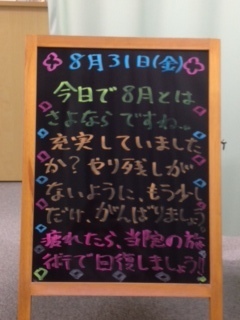 8月31日(金)
今日で8月とは
さよならですね…
充実していました
か?やり残しが
ないように、もう少し
だけ、がんばりましょう。
疲れたら、当院の施
術で回復しましょう!